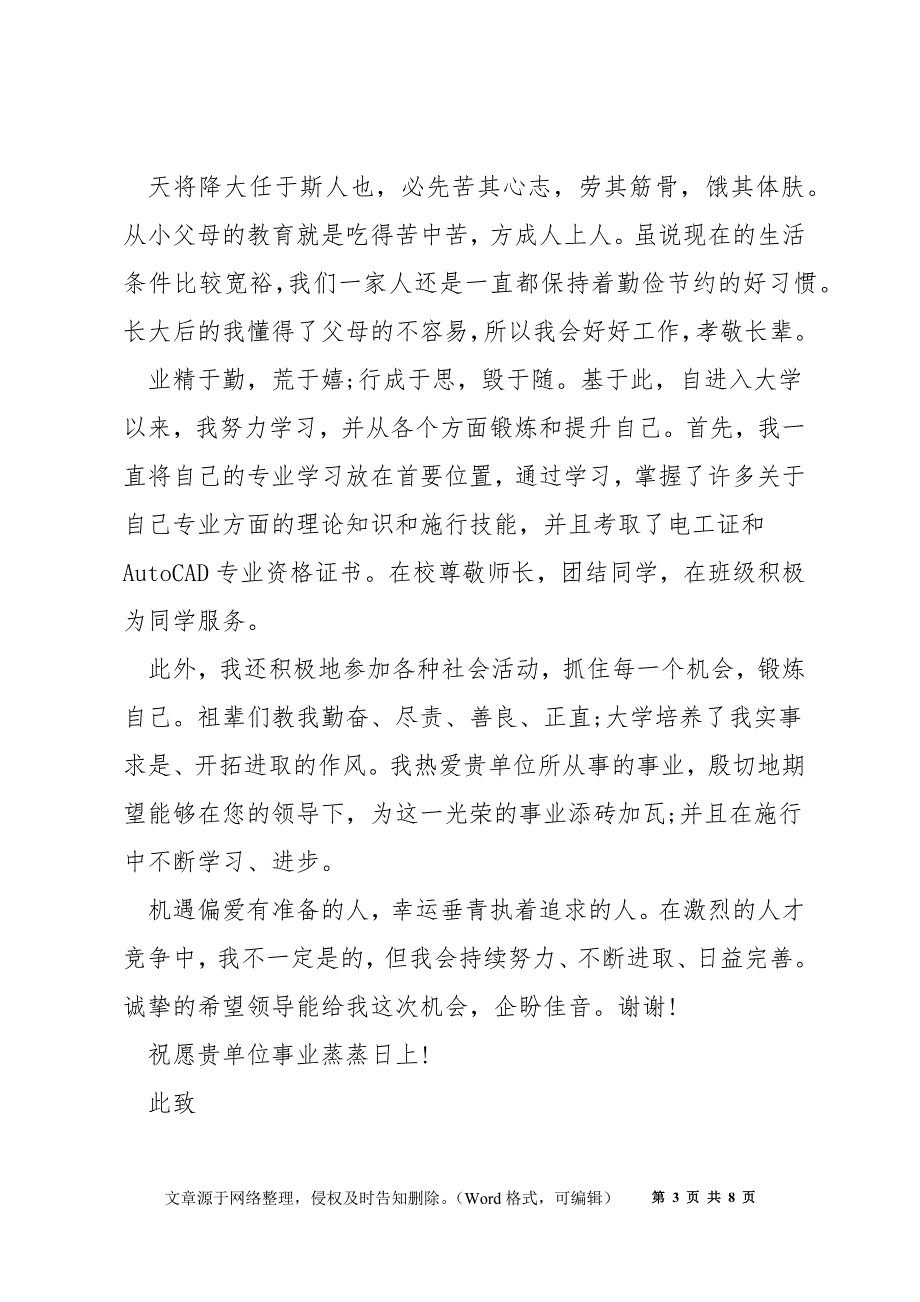 天将降大任于斯人也，必先苦其心志，劳其筋骨，饿其体肤。
从小父母的教育就是吃得苦中苦，方成人上人。虽说现在的生活
条件比较宽裕，我们一家人还是一直都保持着勤俭节约的好习惯。
长大后的我懂得了父母的不容易，所以我会好好工作，孝敬长辈。
业精于勤，荒于嬉;行成于思，毁于随。基于此，自进入大学
以来，我努力学习，并从各个方面锻炼和提升自己。首先，我一
直将自己的专业学习放在首要位置，通过学习，掌握了许多关于
自己专业方面的理论知识和施行技能，并且考取了电工证和
AutoCAD 专业资格证书。在校尊敬师长，团结同学，在班级积极
为同学服务。
此外，我还积极地参加各种社会活动，抓住每一个机会，锻炼
自己。祖辈们教我勤奋、尽责、善良、正直;大学培养了我实事
求是、开拓进取的作风。我热爱贵单位所从事的事业，殷切地期
望能够在您的领导下，为这一光荣的事业添砖加瓦;并且在施行
中不断学习、进步。
机遇偏爱有准备的人，幸运垂青执着追求的人。在激烈的人才
竞争中，我不一定是的，但我会持续努力、不断进取、日益完善。
诚挚的希望领导能给我这次机会，企盼佳音。谢谢!
祝愿贵单位事业蒸蒸日上!
此致
文章源于网络整理，侵权及时告知删除。（Word 格式，可编辑） 第 3 页 共 8 页